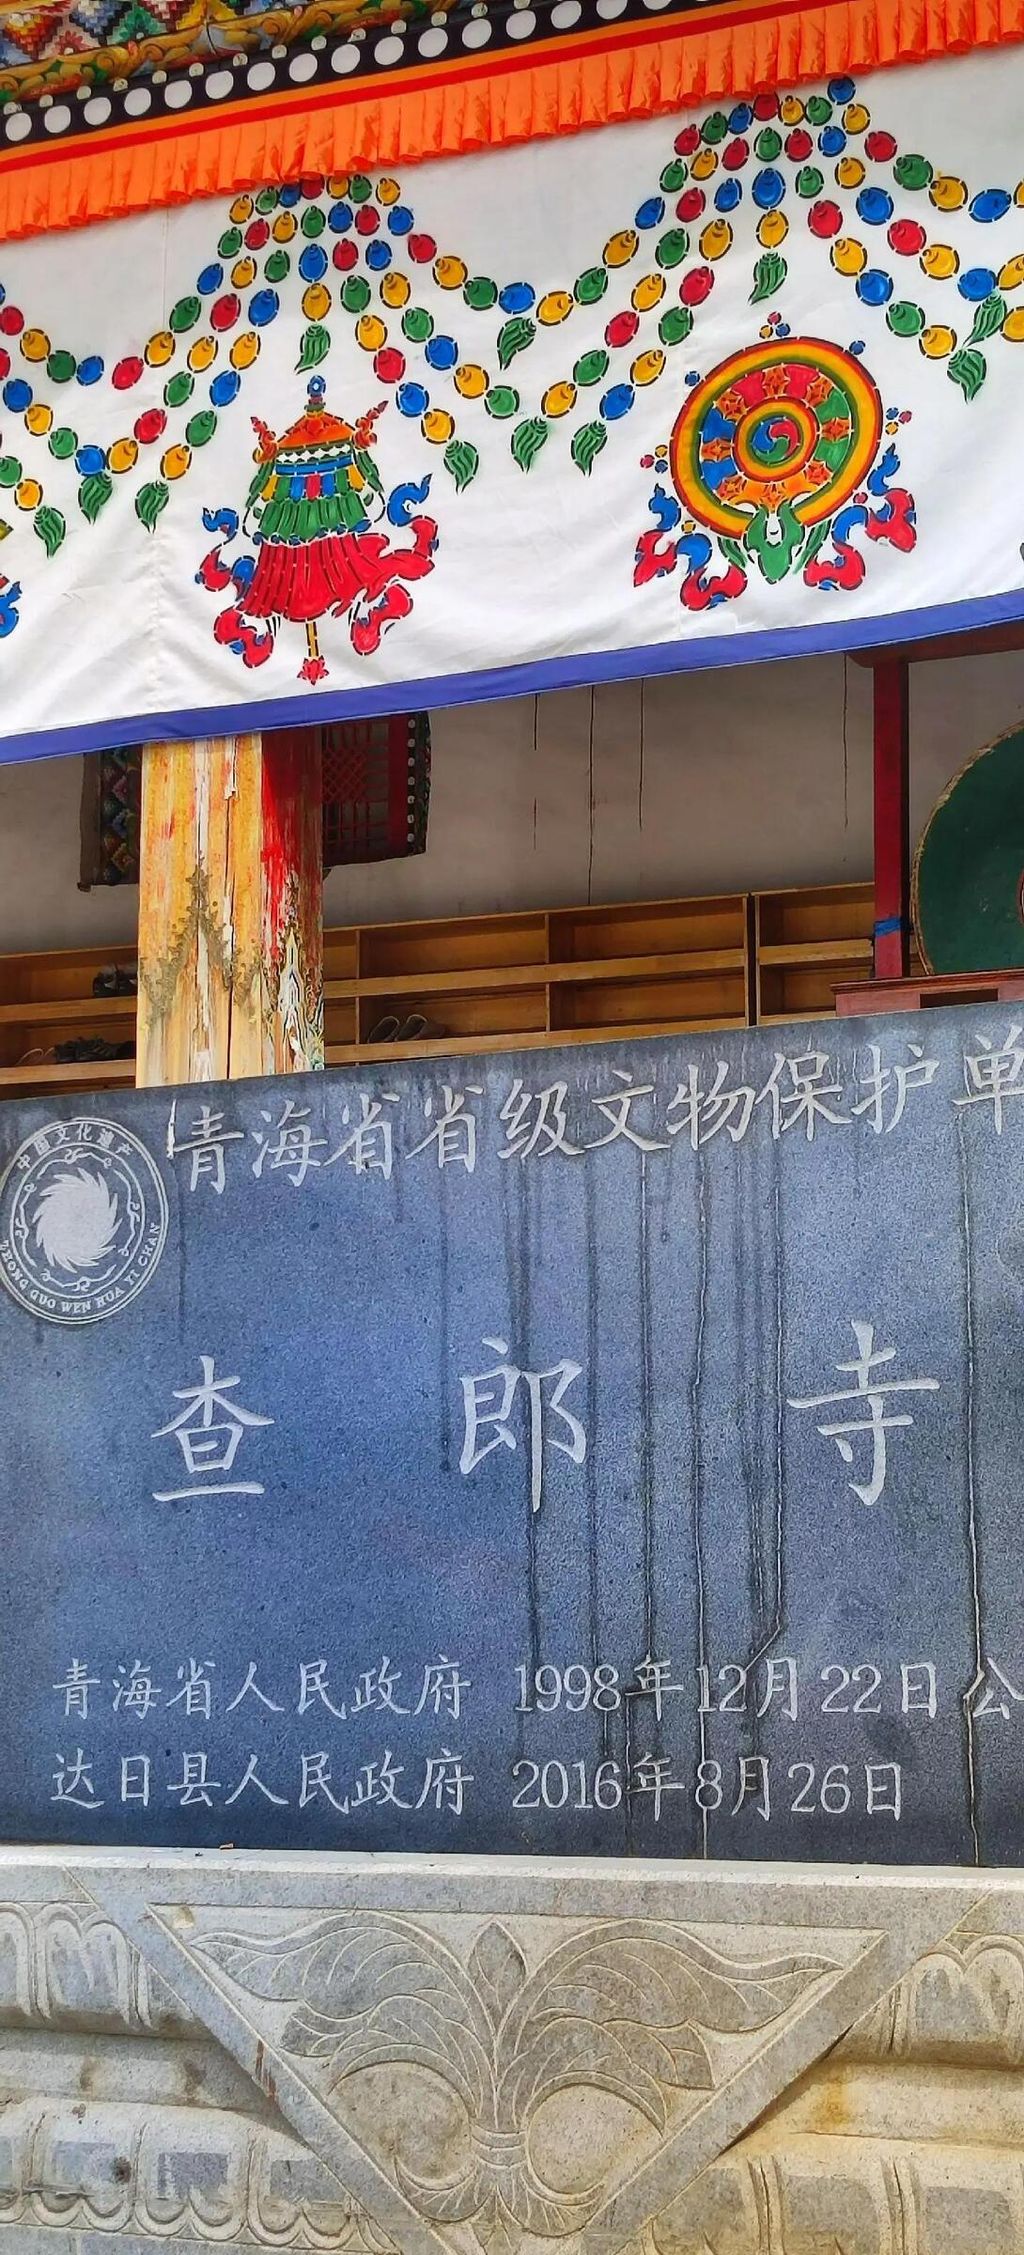 青海省省级文物保护单
中国文化遗产
ZHONG GUO WEN HUA YI CHAN
查郎寺
青海省人民政府 1998年12月22日 公
达日县人民政府 2016年8月26日